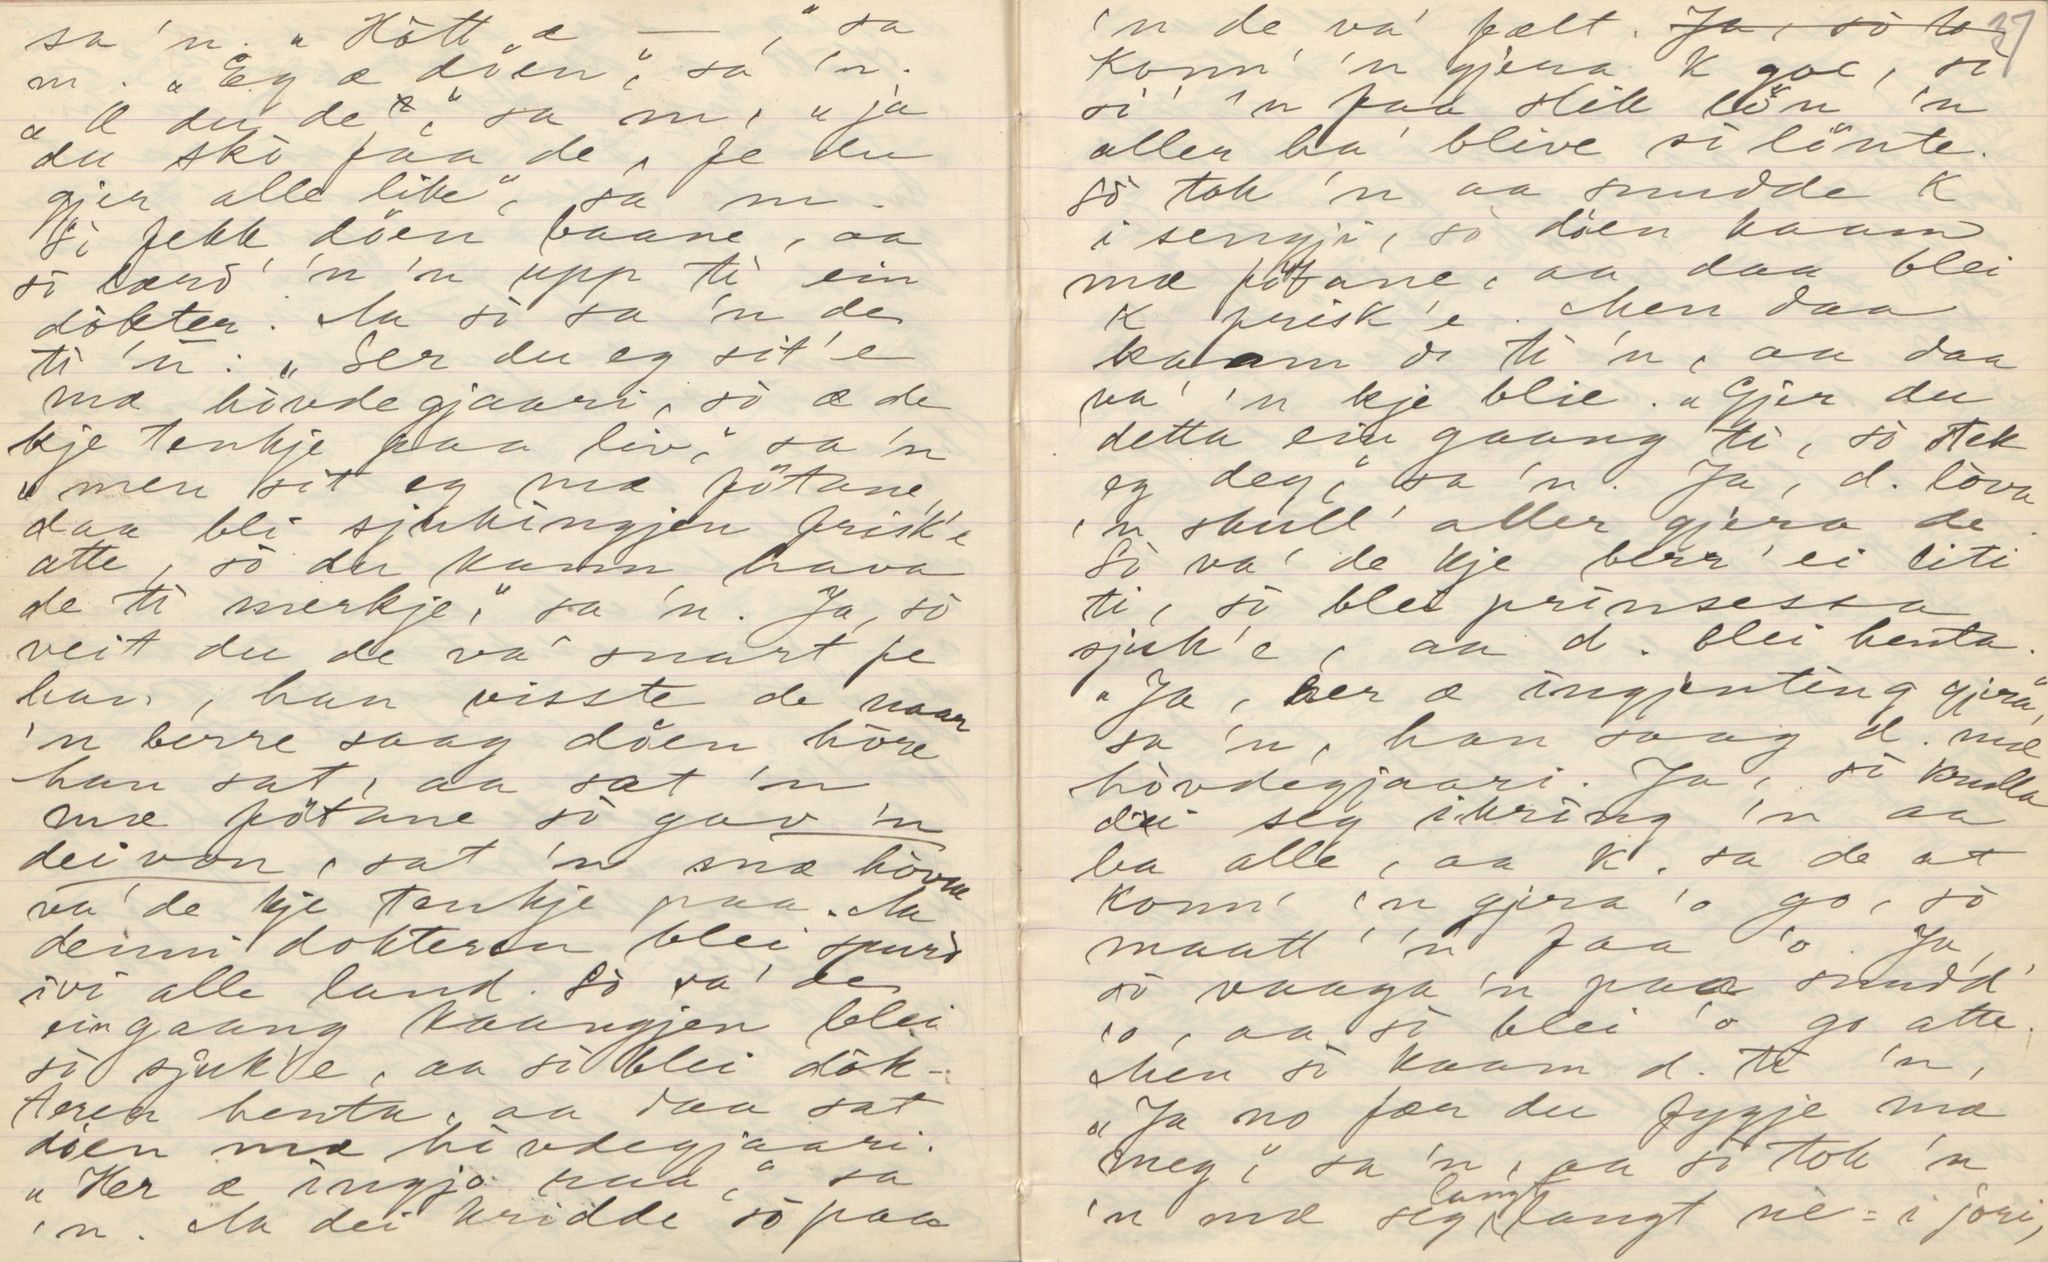 sa 'n. „Hòtt æ — “, sa
m. „Eg æ döen“, sa 'n.
„Æ du de“, sa m, „ja
du skò faa de, fe du
gjer alle like“, sa m.
Sò fekk döen baane, aa
sò lærd' 'n 'n upp ti ein
dökter. Aa sò sa 'n de
ti 'n: „Ser du eg sit'e
mæ hòvdegjaari, sò æ de
kje tenkje paa liv“, sa 'n
„men sit eg mæ fötane,
daa bli sjukingjen frisk'e
atte, sò du kann hava
de ti merkje“, sa 'n. Ja, sò
veit du de va' snart fe
han, han visste de naar
'n berre saag döen hòre
han sat, aa sat 'n
mæ fötane sò gav 'n
dei von, sat 'n mæ hòvde
va' de kje tenkje paa. Aa
denni dokteren blei spurd
ivi alle land. Sò va' de
ein gaang kaangjen blei
sò sjuk'e, aa sò blei dök-
teren henta, aa daa sat
döen mæ hòvdegjaari.
„Her æ ingjo raa“, sa
'n. Aa dei kridde sò paa
37
'n de va' fælt. Ja, sò to
Konn' 'n gjera K goe, sò
sò' 'n faa slik lön 'n
aller ha' blive sò lönte.
Sò tok 'n aa snudde K
i sengji, sò döen kaam
mæ fötane, aa daa blei
K frisk'e. Men daa
kaam d ti 'n, aa daa
va' 'n kje blie. „Gjer du
detta ein gaang ti, sò stek
eg deg“, sa 'n. Ja, d. lòva
'n skull' aller gjera de.
Sò va' de kje berr' ei liti
ti, sò blei prinsessa
sjuk'e, aa d. blei henta.
„Ja, her æ ingjenting gjera“,
sa 'n, han saag d. mæ
hòvdegjaari. Ja, sò krulla
dei seg ikring 'n aa
ba alle, aa K. sa de at
konn' 'n gjera 'o go, sò
maatt' 'n faa 'o. Ja,
sò vaaga 'n paa snudd'
'o, aa sò blei 'o go atte.
Men sò kaam d. ti 'n,
„Ja no fær du fygje mæ
meg“, sa 'n, aa sò tok 'n
'n mæ seg langt langt ne i jori,